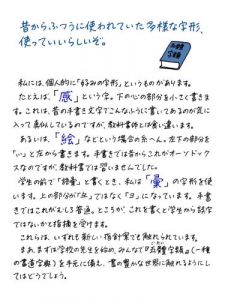 昔からふつうに使われていた多様な字形、
使っていいらしいぞ。
私には、個人的に「好みの字形」というものがあります。
たとえば、「感」という字。下の心の部分を小さく書きま
す。これは、昔の手書き文字でこんなふうに書いてあるのが気に
入って真似しているのですが、教科書体とは食い違います。
あるいは、「絵」などという場合の糸へん。左下の部分を
「い」と左から書きます。手書きでは昔からこれがオーソドック
スなのですが、教科書では習いませんでした。
学生の前で「語彙」と書くとき、私は「彙」の字形を使い
ます。上の部分が「彑」ではなく「ヨ」になっています。手書
きではこれがむしろ普通。ところが、これを書くと学生から誤字
ではないかと指摘を受けます。
これらは、いずれも新しい指針案でも触れられています。
まあ、まずは学校の先生を始め、みんな『五體字類』(一種
の書道字典)を手元に備え、書の豊かな世界に触れるようにし
てはどうでしょう。